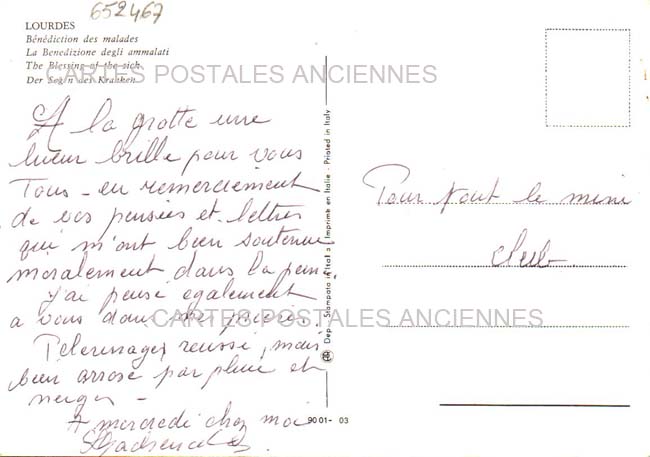 652467
LOURDES
Bénédiction des malades
La Benedizione degli ammalati
The Blessing of the sick
Der Segen des Kranken
CARTES POSTALES ANCIENNES
A la grotte une
lueur brille pour vous
Tous - en remerciement
de vos pensées et lettres
qui m'ont bien soutenue
moralement dans la peine,
j'ai pensé également
a vous dans mes prières.
CARTES POSTALES ANCIENNES
Pèlerinages reussé, mais
bien arrosé par pluie et
neiges -
A mercredi chez moi
Pour tout le mini
club
Dep. Stampato in Italia - Imprimé en Italie - Printed in Italy
9001 - 03